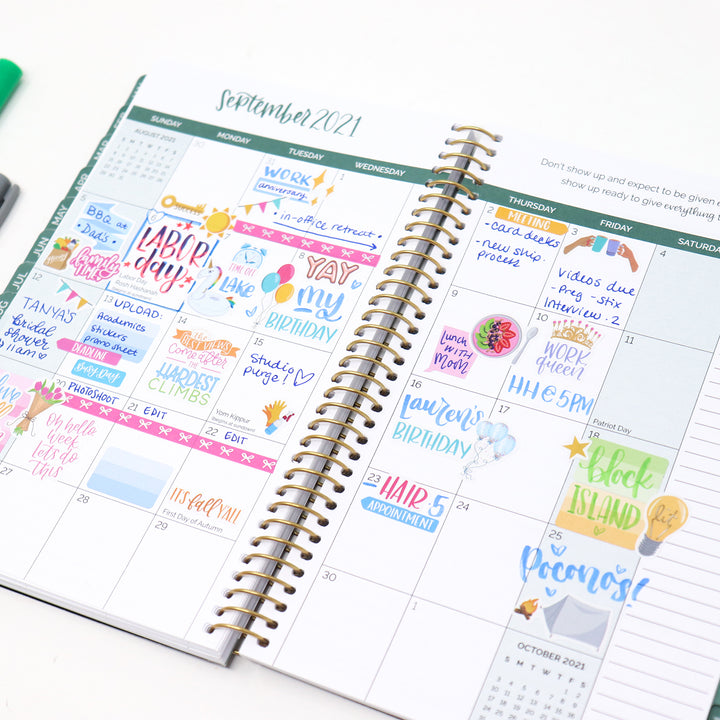 September 2021
Don't show up and expect to be given e
show up ready to give everything
MAR
APR
MAY
JUN
JUL
SUNDAY
MONDAY
TUESDAY
WEDNESDAY
THURSDAY
FRIDAY
SATURDA
AUGUST 2021
S M T W T F S
30
31
WORK
anniversary
1
in-office retreat
2
MEETING
- card decks
- new ship.
process
3
videos due
- Preg - stix
interview: 2
4
5
BBQ @
Dad's
family
time
LABOR
day
Labor Day
Rosh Hashanah
7
TIME OFF
LAKE
8
YAY
my
BIRTHDAY
9
LUNCH
WITH
MOM
10
WORK
queen
HH @ 5PM
Patriot Day
11
12
TANYA'S
bridal
shower
11am ♡
13
UPLOAD:
Academics
stickers
promo sheet
DEADLINE
Busy Day
14
THE BEST VIEWS
Come after
the
HARDEST
CLIMBS
15
Studio
purge! ♡
Yom Kippur
Begins at sundown
16
Lauren's
BIRTHDAY
17
18
block
ISLAND
20
PHOTOSHOOT
Oh hello
week
lets do
THIS
21
EDIT
22
EDIT
IT'S fall Y'ALL
First Day of Autumn
23
HAIR 5
APPOINTMENT
24
25
Poconos!
lit
27
28
29
30
1
OCTOBER 2021
S M T W T F S
1 2
3 4 5 6 7 8 9
10 11 12 13 14 15 16